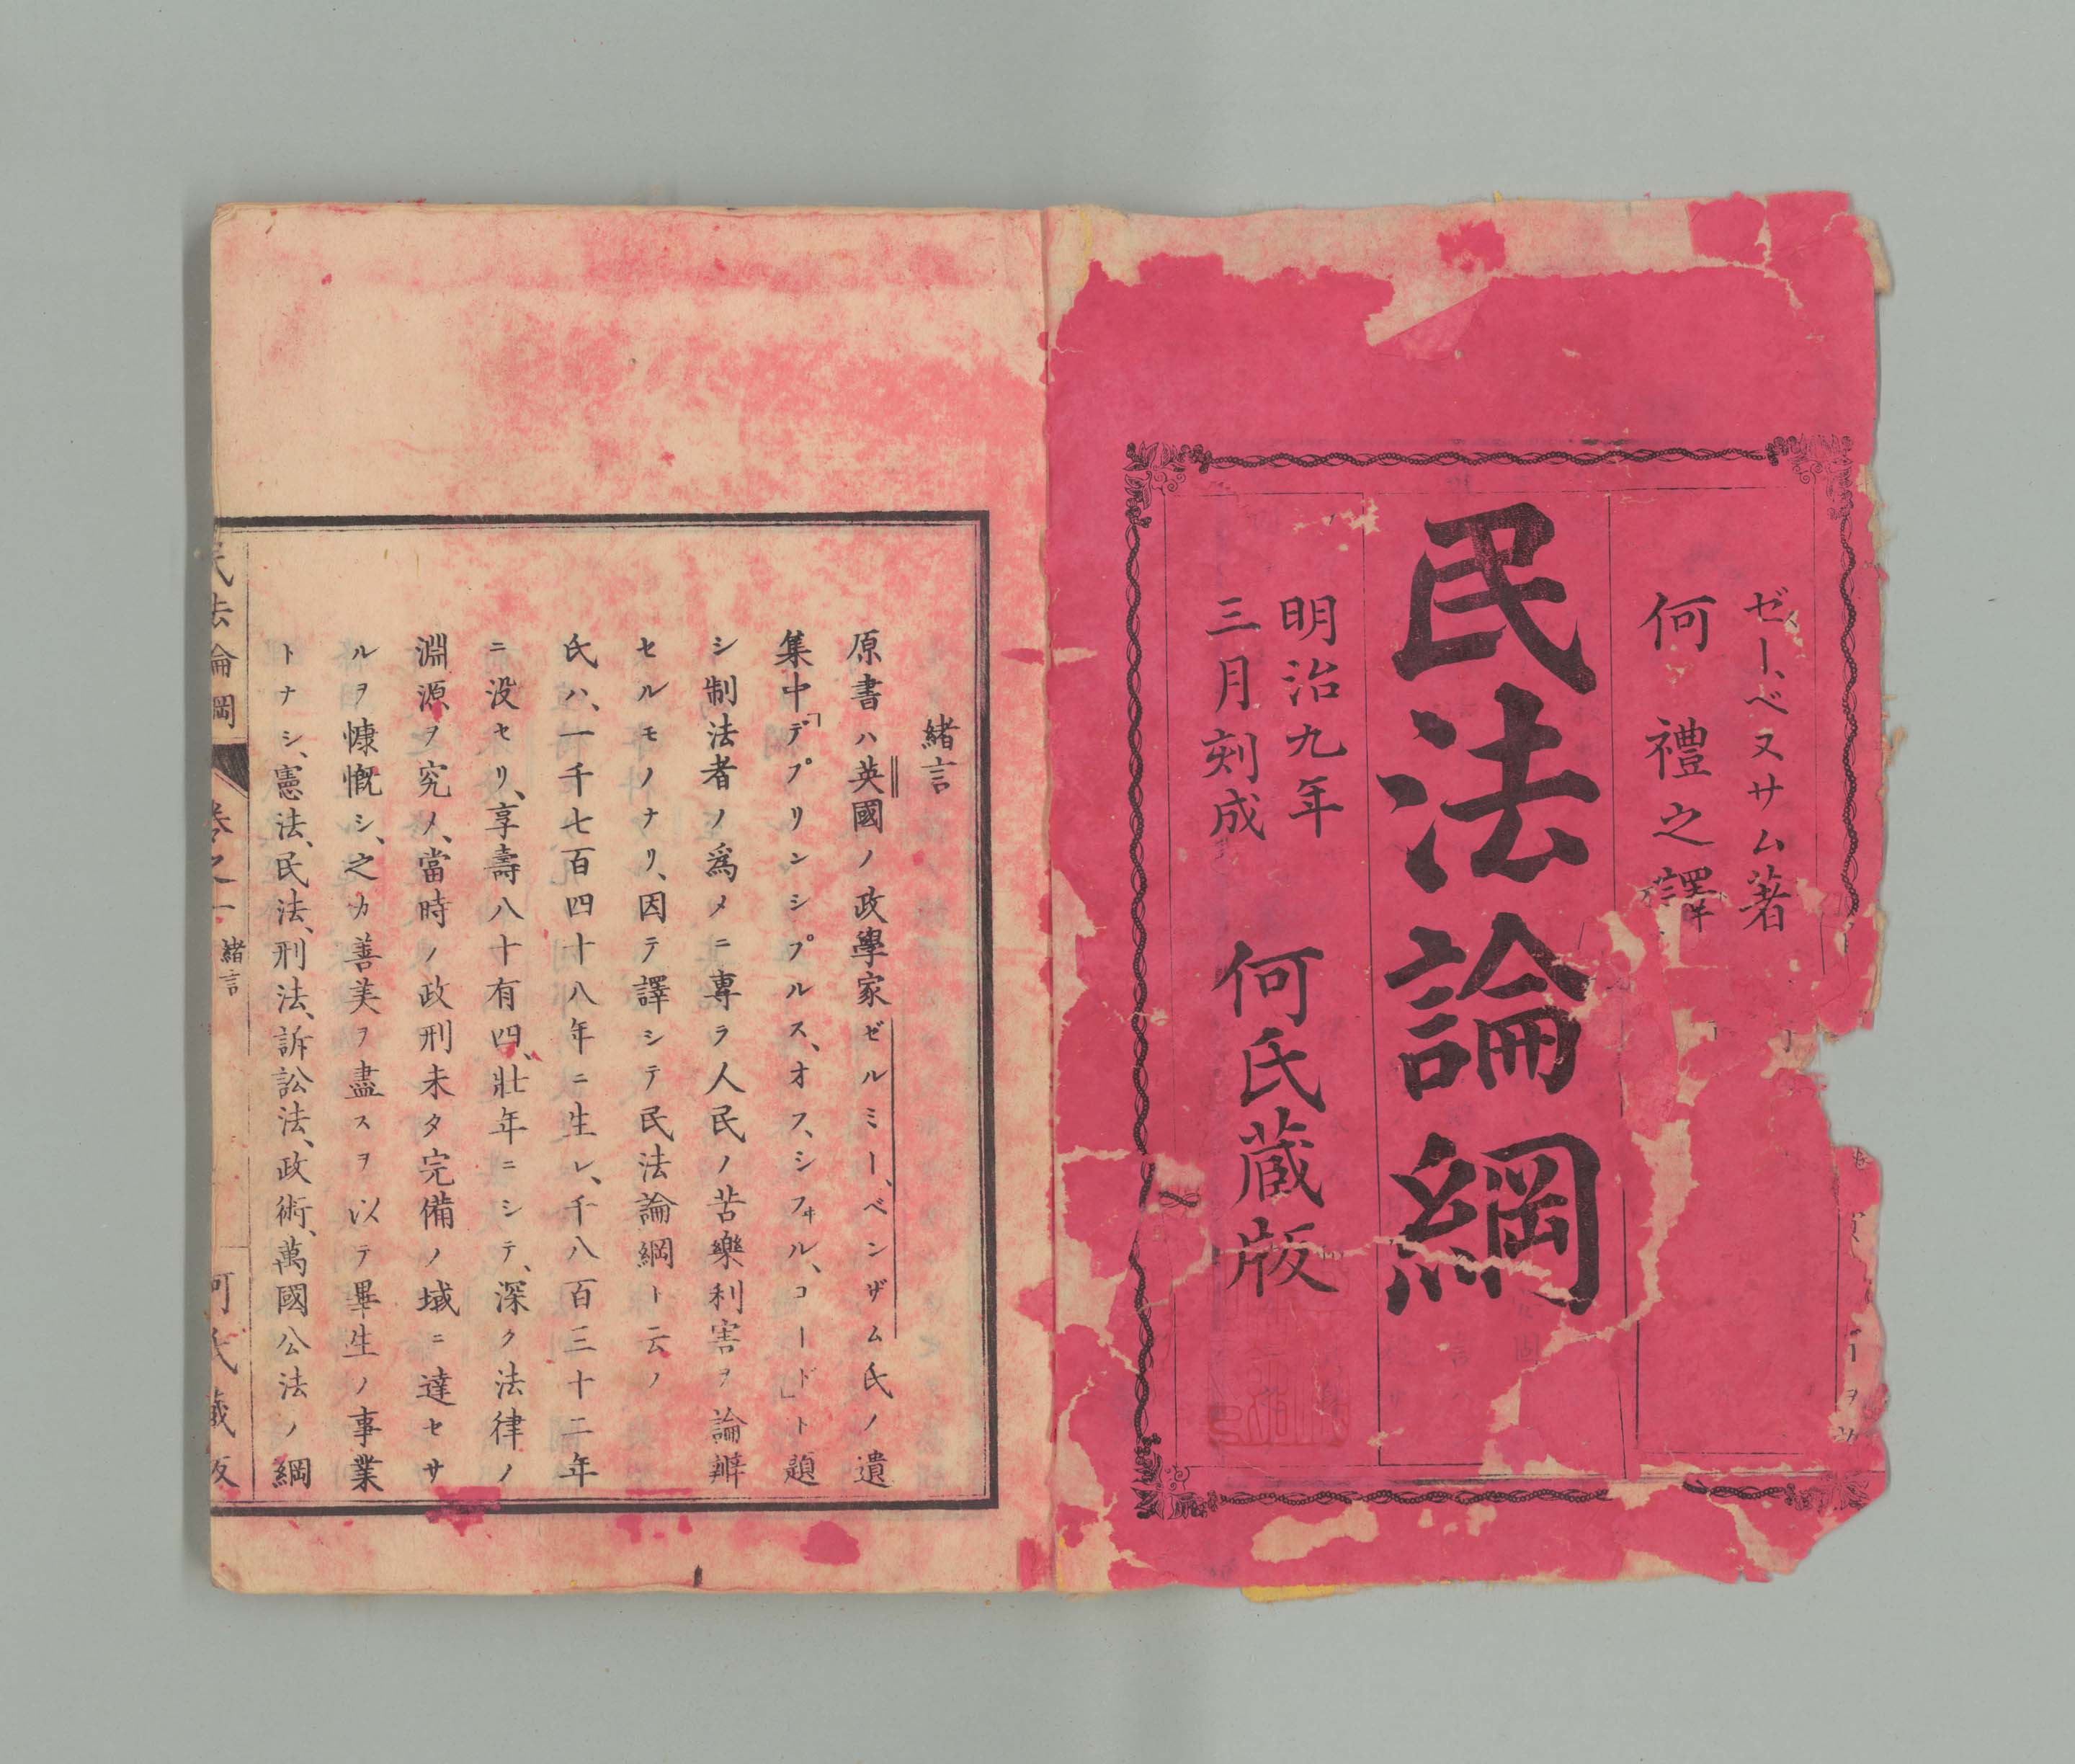 ゼー、ベヌサム著
何禮之譯
民法論綱
明治九年
三月刻成
何氏蔵版
緒言
原書ハ英國ノ政學家ゼルミー、ベンザム氏ノ遺
集中「デプリンシプルス、オフ、シフヰル、コード」ト題
シ制法者ノ爲メニ專ラ人民ノ苦樂利害ヲ論辨
セルモノナリ、因テ譯シテ民法論綱ト云フ
氏ハ、一千七百四十八年ニ生レ、千八百三十二年
ニ没セリ、享壽八十有四、壯年ニシテ、深ク法律ノ
淵源ヲ究メ、當時ノ政刑未タ完備ノ域ニ達セサ
ルヲ慷慨シ、之カ善美ヲ盡スヲ以テ畢生ノ事業
トナシ、憲法、民法、刑法、訴訟法、政術、萬國公法ノ綱
民法論綱 卷之一 緒言 何氏蔵版